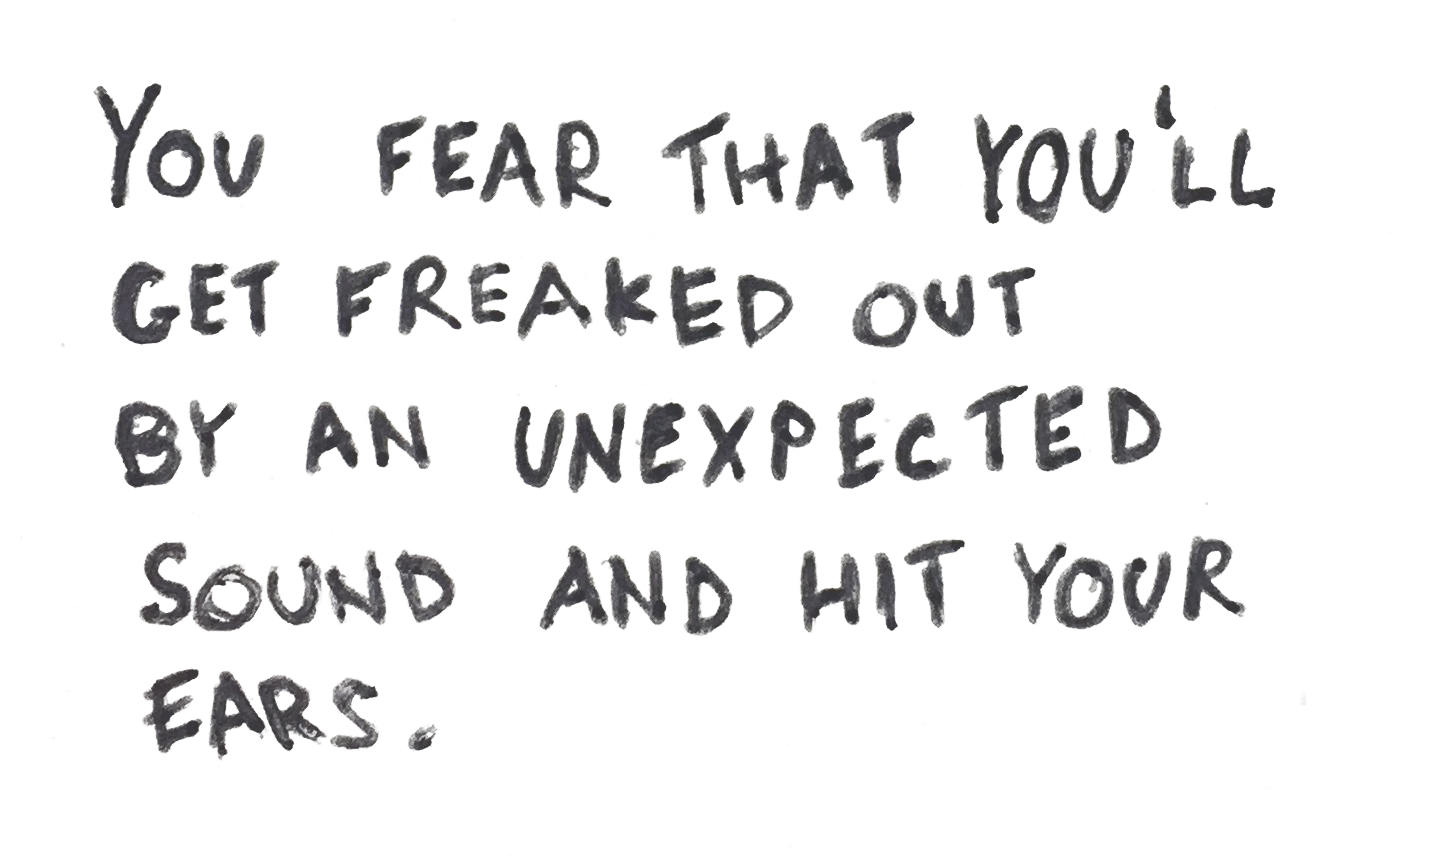 YOU FEAR THAT YOU'LL
GET FREAKED OUT
BY AN UNEXPECTED
SOUND AND HIT YOUR
EARS.